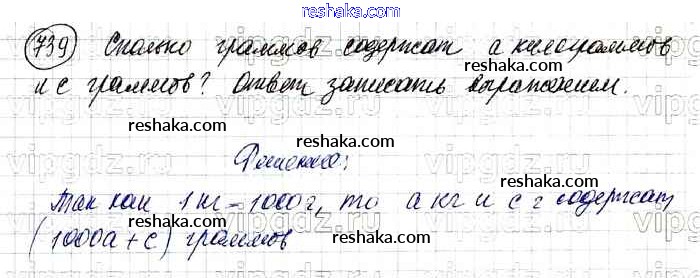 739 Сколько граммов содержат а килограммов
и с граммов? Ответ записать выражением.
Решение:
Так как 1 кг = 1000 г, то а кг и с г содержат
(1000а + с) граммов
reshaka.com
reshaka.com
reshaka.com
reshaka.com
reshaka.com
reshaka.com
reshaka.com
vipgdz.ru